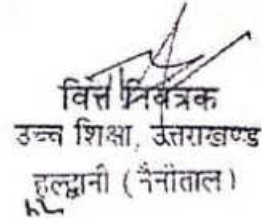 वित्त नियंत्रक
उच्च शिक्षा, उत्तराखण्ड
हल्द्वानी (नैनीताल)